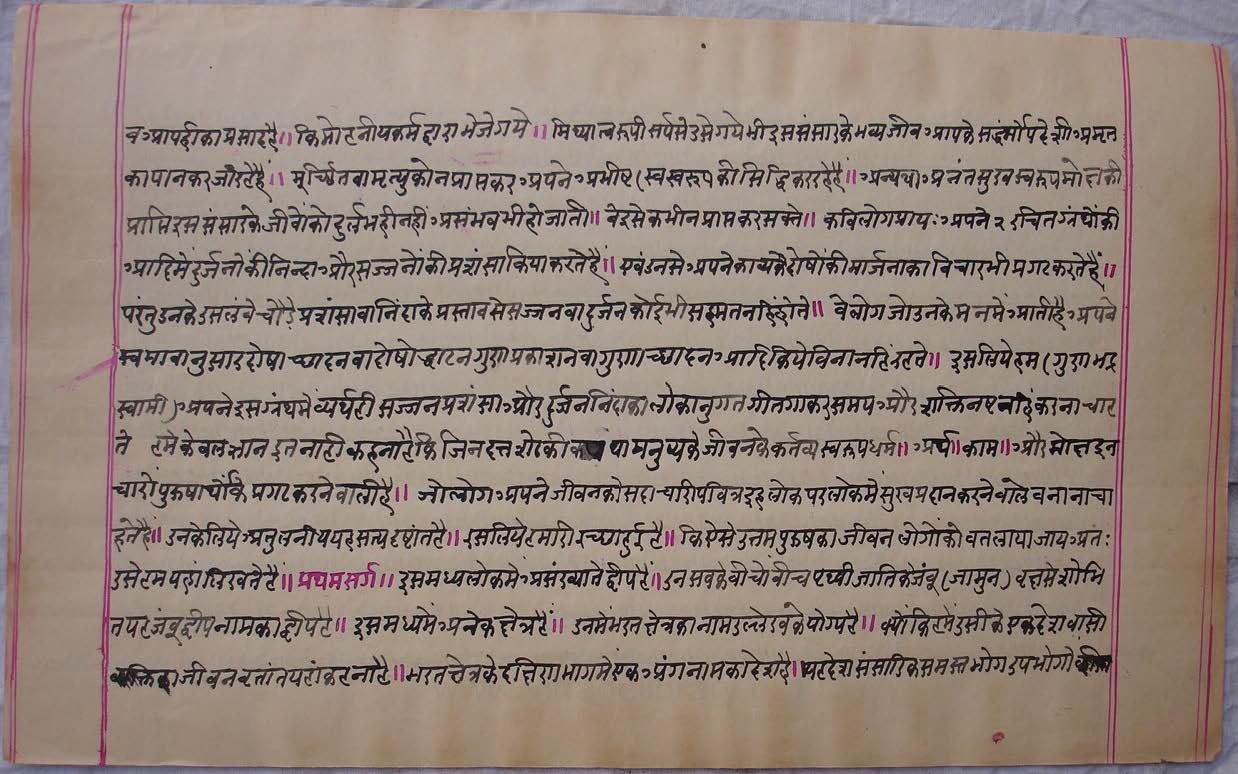 व अापही का प्रसाद है॥ कि मोहनीय कर्म द्वारा भेजे गये॥ मिथ्यात्व रूपी सर्प से डसे गये भी इस संसार के भव्य जीव अापके सद्धर्मोपदेशी अमृत
का पान कर जी रहे हैं॥ मूर्च्छित वा मृत्यु को न प्राप्त कर अपने अभीष्ट (स्वस्वरूप की सिद्धि कर रहे हैं॥ अन्यथा अनंत सुख स्वरूप मोक्ष की
प्राप्ति इस संसार के जीवों को दुर्लभ ही नहीं असंभव भी हो जाती॥ वे उसे कभी न प्राप्त कर सक्ते॥ कवि लोग प्रायः अपने २ रचित ग्रंथों की
अादि में दुर्जनों की निन्दा अौर सज्जनों की प्रशंसा किया करते हैं॥ एवं उनसे अपने काव्य के दोषों की मार्जना का विचार भी प्रगट करते हैं॥
परंतु उनके उस लंबे चौड़े प्रशंसा वा निंदा के प्रस्ताव से सज्जन वा दुर्जन कोई भी सहमत नहिं होते॥ वे लोग जो उनके मन में अाती है अपने
स्वभावानुसार दोषाच्छादन वा दोषोद्घाटन गुण प्रकाशन वा गुणाच्छादन अादि किये विना नहिं रहते॥ इसलिये हम (गुणभद्र
स्वामी) अपने इस ग्रंथ में व्यर्थ ही सज्जन प्रशंसा अौर दुर्जन निंदा का लोकानुगत गीत गाकर समय अौर शक्ति नष्ट नहिं करना चाह
ते हमे केवल इतना ही कहना है कि जिनदत्त शेठ की कथा मनुष्य के जीवन के कर्तव्य स्वरूप धर्म॥ अर्थ॥ काम॥ अौर मोक्ष इन
चारों पुरुषार्थों के प्रगट करने वाली है॥ जो लोग अपने जीवन को सदाचारी पवित्र इह लोक परलोक में सुख प्रदान करने वाले बनाना चा
हते हैं॥ उनके लिये अतुलनीय यह सत्य दृष्टांत है॥ इसलिये हमारी इच्छा हुई है॥ कि ऐसे उत्तम पुरुष का जीवन लोगों को बतलाया जाय अतः
उसे हम यहां लिखते हैं॥ प्रथम सर्ग॥ इस मध्य लोक में असंख्याते द्वीप हैं॥ उन सबके बीचों बीच पृथ्वी जाति के जंबू (जामुन) वृक्ष से शोभि
त यह जंबूद्वीप नाम का द्वीप है॥ इस मध्य में अनेक क्षेत्र हैं॥ उनमें भरत क्षेत्र का नाम उल्लेख के योग्य है॥ क्यों कि हमें उसी के एक देश वासी
व्यक्ति का जीवन वृतांत यहां कहना है॥ भरत क्षेत्र के दक्षिण भाग में एक अंग नाम का देश है॥ यह देश संसारिक समस्त भोग उपभोगो